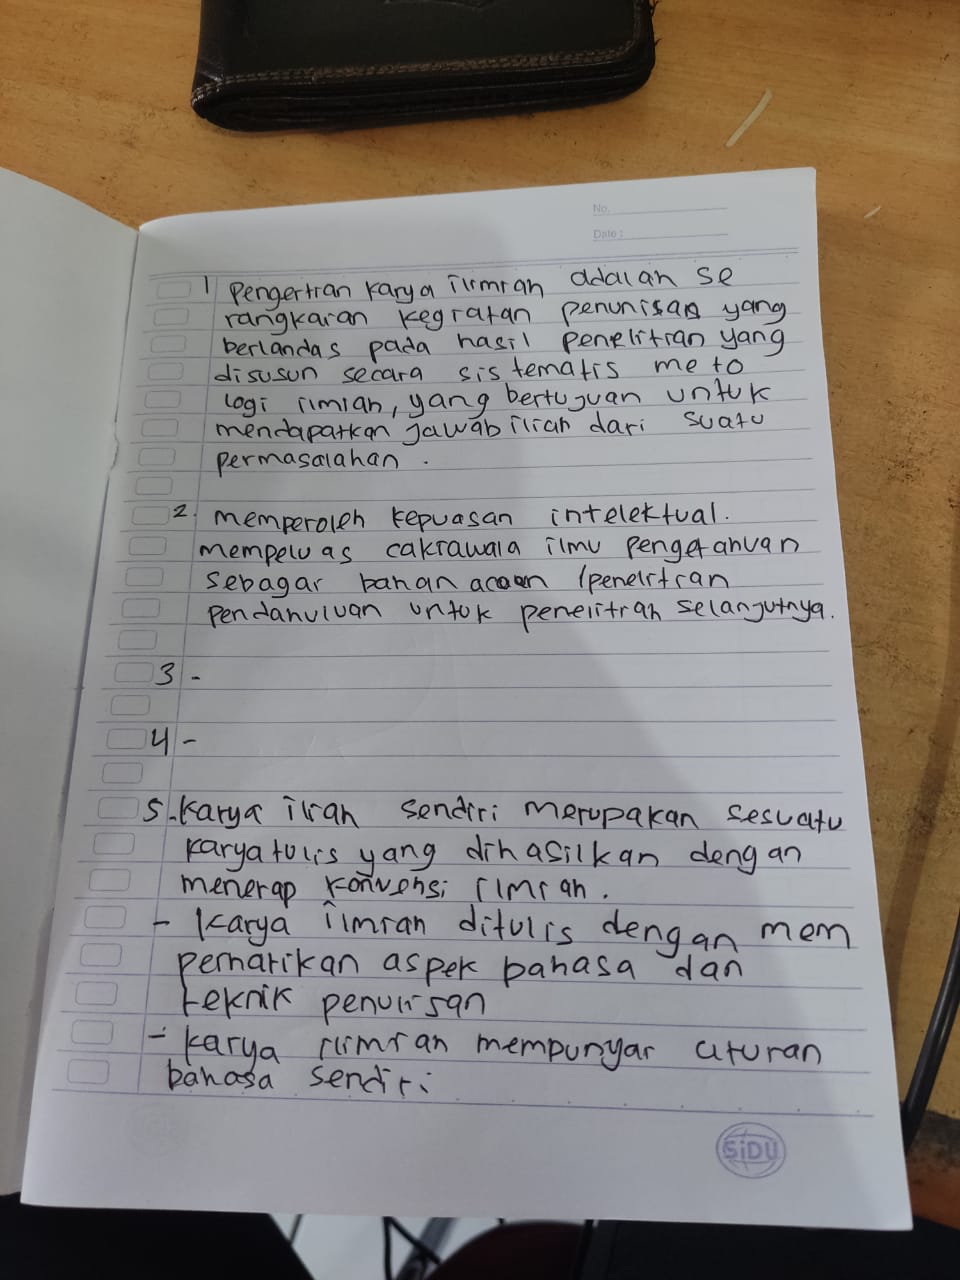 No.
Date :
1 Pengertian karya ilimiah adalah se
rangkaian kegiatan penunisan yang
berlandas pada hasil penelitian yang
disusun secara sistematis meto
logi ilmiah, yang bertujuan untuk
mendapatkan jawab iliah dari suatu
permasalahan .
2. memperoleh kepuasan intelektual.
mempeluas cakrawala ilmu pengetahuan
sebagai bahan acaan /penelitian
pendahuluan untuk penelitiah selanjutnya.
3 -
4 -
5. karya iliah sendiri merupakan sesuatu
karya tulis yang dihasilkan dengan
menerap konvensi ilmiah.
- karya ilmiah ditulis dengan mem
perhatikan aspek bahasa dan
teknik penulisan
- karya ilimiah mempunyai aturan
bahasa sendiri
SiDU